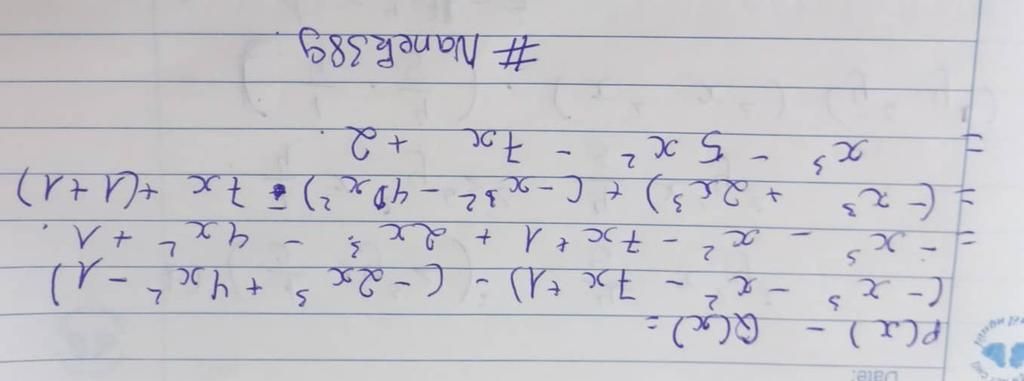 Date:
P(x) - Q(x) =
(-x³ - x² - 7x + 1) - (-2x³ + 4x² - 1)
= -x³ - x² - 7x + 1 + 2x³ - 4x² + 1.
= (-x³ + 2x³) + (-x² - 4x²) - 7x + (1+1)
= x³ - 5x² - 7x + 2.
# Nanek389